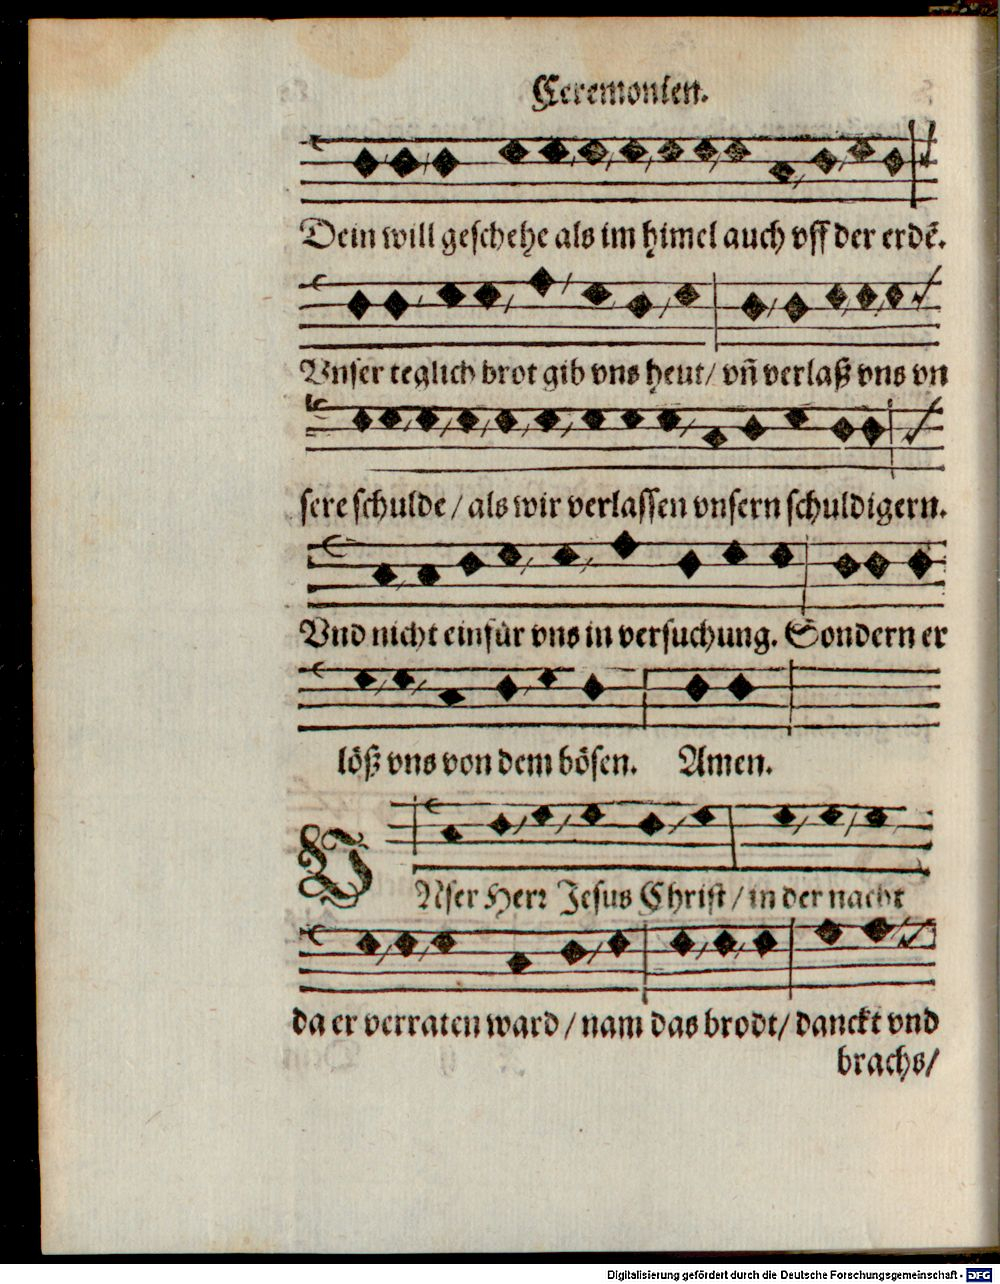 Ceremonien.
Dein will geschehe als im himel auch vff der erdẽ.
Vnser teglich brot gib vns heut/ vñ verlaß vns vn
sere schulde / als wir verlassen vnsern schuldigern.
Vnd nicht einfür vns in versuchung. Sondern er
löß vns von dem bösen. Amen.
VNser Herr Jesus Christ / in der nacht
da er verraten ward / nam das brodt/ danckt vnd
brachs/
Digitalisierung gefördert durch die Deutsche Forschungsgemeinschaft - DFG